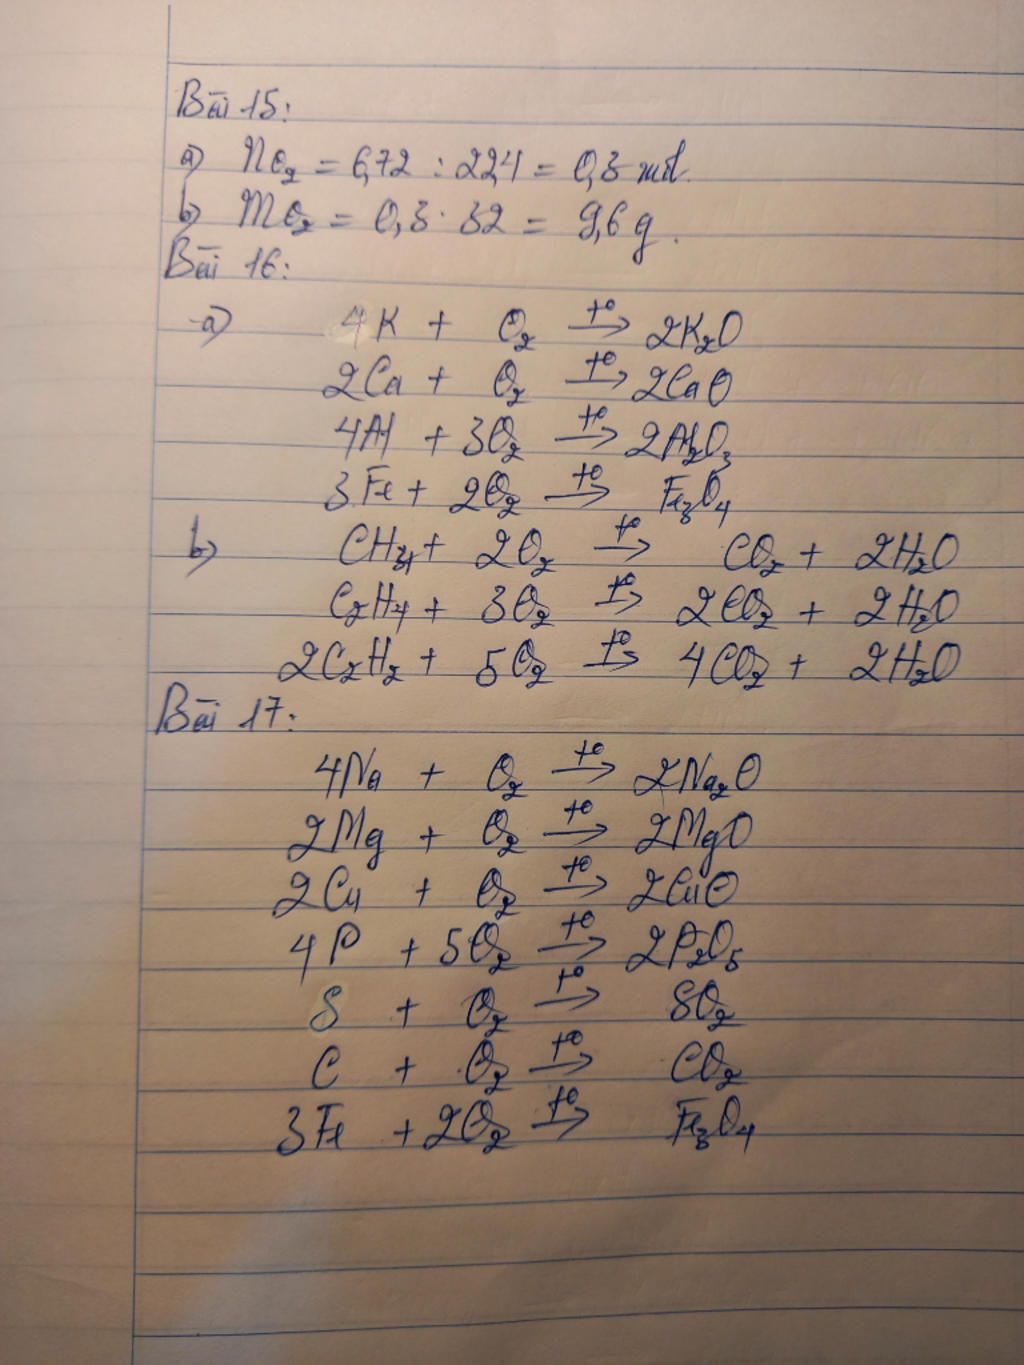 Bài 15:
a) nO₂ = 6,72 : 22,4 = 0,3 mol.
b) mO₂ = 0,3 . 32 = 9,6 g.
Bài 16:
a) 4K + O₂ t°→ 2K₂O
2Ca + O₂ t°→ 2CaO
4Al + 3O₂ t°→ 2Al₂O₃
3Fe + 2O₂ t°→ Fe₃O₄
b) CH₄ + 2O₂ t°→ CO₂ + 2H₂O
C₂H₄ + 3O₂ t°→ 2CO₂ + 2H₂O
2C₂H₂ + 5O₂ t°→ 4CO₂ + 2H₂O
Bài 17:
4Na + O₂ t°→ 2Na₂O
2Mg + O₂ t°→ 2MgO
2Cu + O₂ t°→ 2CuO
4P + 5O₂ t°→ 2P₂O₅
S + O₂ t°→ SO₂
C + O₂ t°→ CO₂
3Fe + 2O₂ t°→ Fe₃O₄